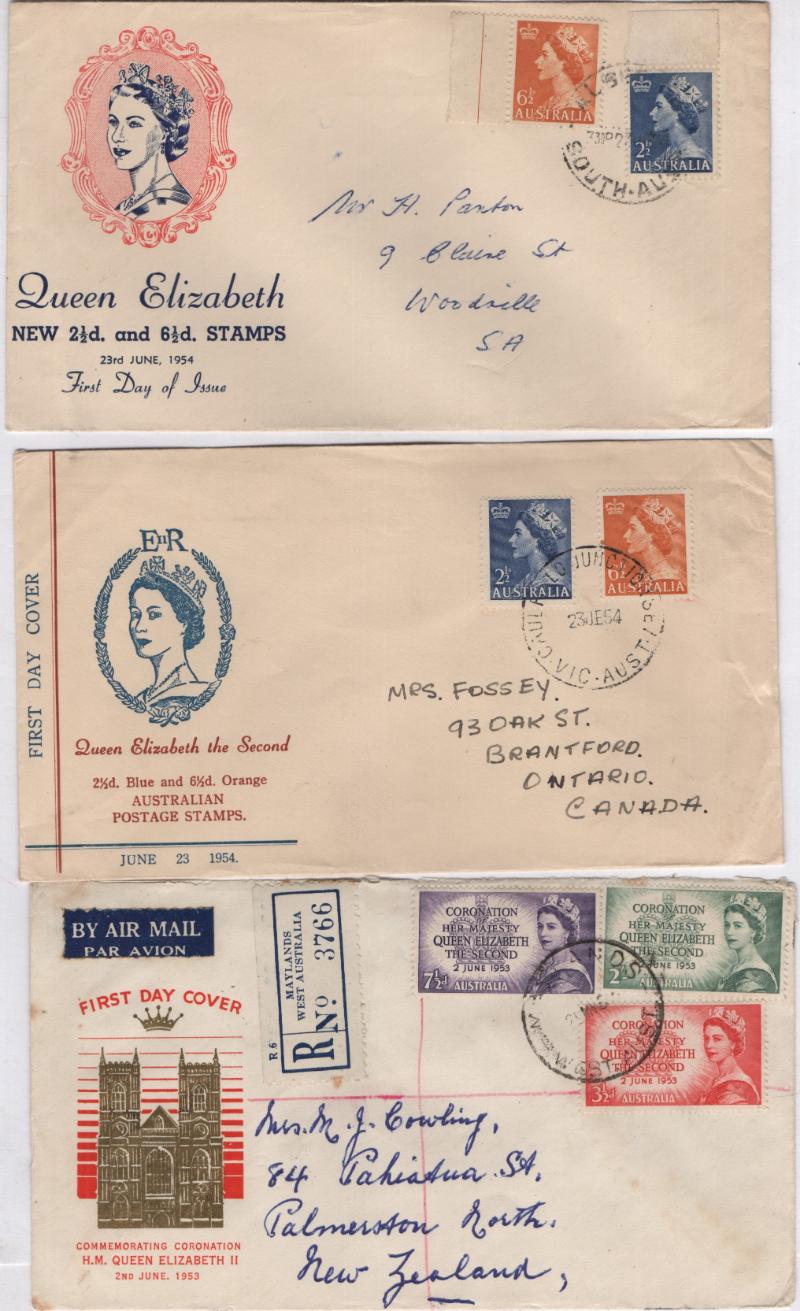 6½
AUSTRALIA
2½
AUSTRALIA
SOUTH-AU
Mr H. Panton
9 Claire St
Woodville
SA
Queen Elizabeth
NEW 2½d. and 6½d. STAMPS
23rd JUNE, 1954
First Day of Issue
FIRST DAY COVER
EIIR
Queen Elizabeth the Second
2½d. Blue and 6½d. Orange
AUSTRALIAN
POSTAGE STAMPS.
JUNE 23 1954.
2½
AUSTRALIA
6½
AUSTRALIA
23JE54
VIC-AUST
MRS. FOSSEY.
93 OAK ST.
BRANTFORD.
ONTARIO.
CANADA.
BY AIR MAIL
PAR AVION
FIRST DAY COVER
COMMEMORATING CORONATION
H.M. QUEEN ELIZABETH II
2ND JUNE. 1953
R6
MAYLANDS
WEST AUSTRALIA
R No 3766
CORONATION
OF
HER MAJESTY
QUEEN ELIZABETH
THE SECOND
2 JUNE 1953
7½d
AUSTRALIA
CORONATION
OF
HER MAJESTY
QUEEN ELIZABETH
THE SECOND
JUNE 1953
AUSTRALIA
CORONATION
OF
HER MAJESTY
QUEEN ELIZABETH
THE SECOND
2 JUNE 1953
3½d
AUSTRALIA
Mrs. M. J. Cowling,
84 Pahiatua St,
Palmerston North,
New Zealand,